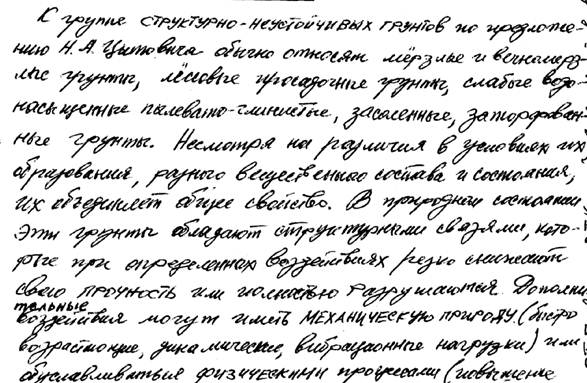 К группе структурно-неустойчивых грунтов по предложе-
нию Н.А. Цытовича обычно относят мёрзлые и вечномерз-
лые грунты, лёссовые просадочные грунты, слабые водо-
насыщенные пылевато-глинистые, засоленные, заторфован-
ные грунты. Несмотря на различия в условиях их
образования, разного вещественного состава и состояния,
их объединяет общее свойство. В природном состоянии
эти грунты обладают структурными связями, кото-
рые при определенных воздействиях резко снижают
свою прочность или полностью разрушаются. Дополни
тельные
воздействия могут иметь МЕХАНИЧЕСКУЮ ПРИРОДУ (быстро
возрастающие, динамические, вибрационные нагрузки) или
обуславливаться физическими процессами (повышение